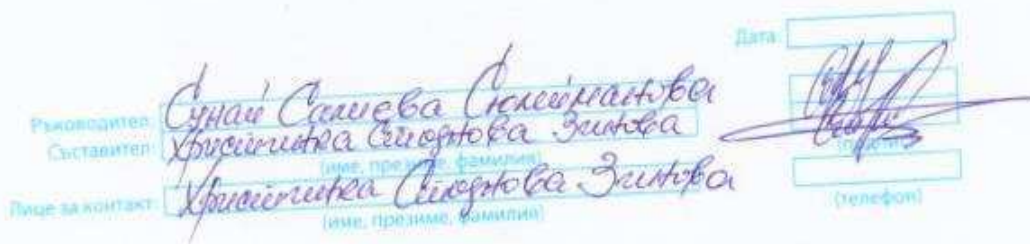 Дата:
Ръководител: Сунай Салиева Сюлейманова
Съставител: Христинка Стоянова Зинкова
(име, презиме, фамилия) (подпис)
Лице за контакт: Христинка Стоянова Зинкова
(име, презиме, фамилия) (телефон)